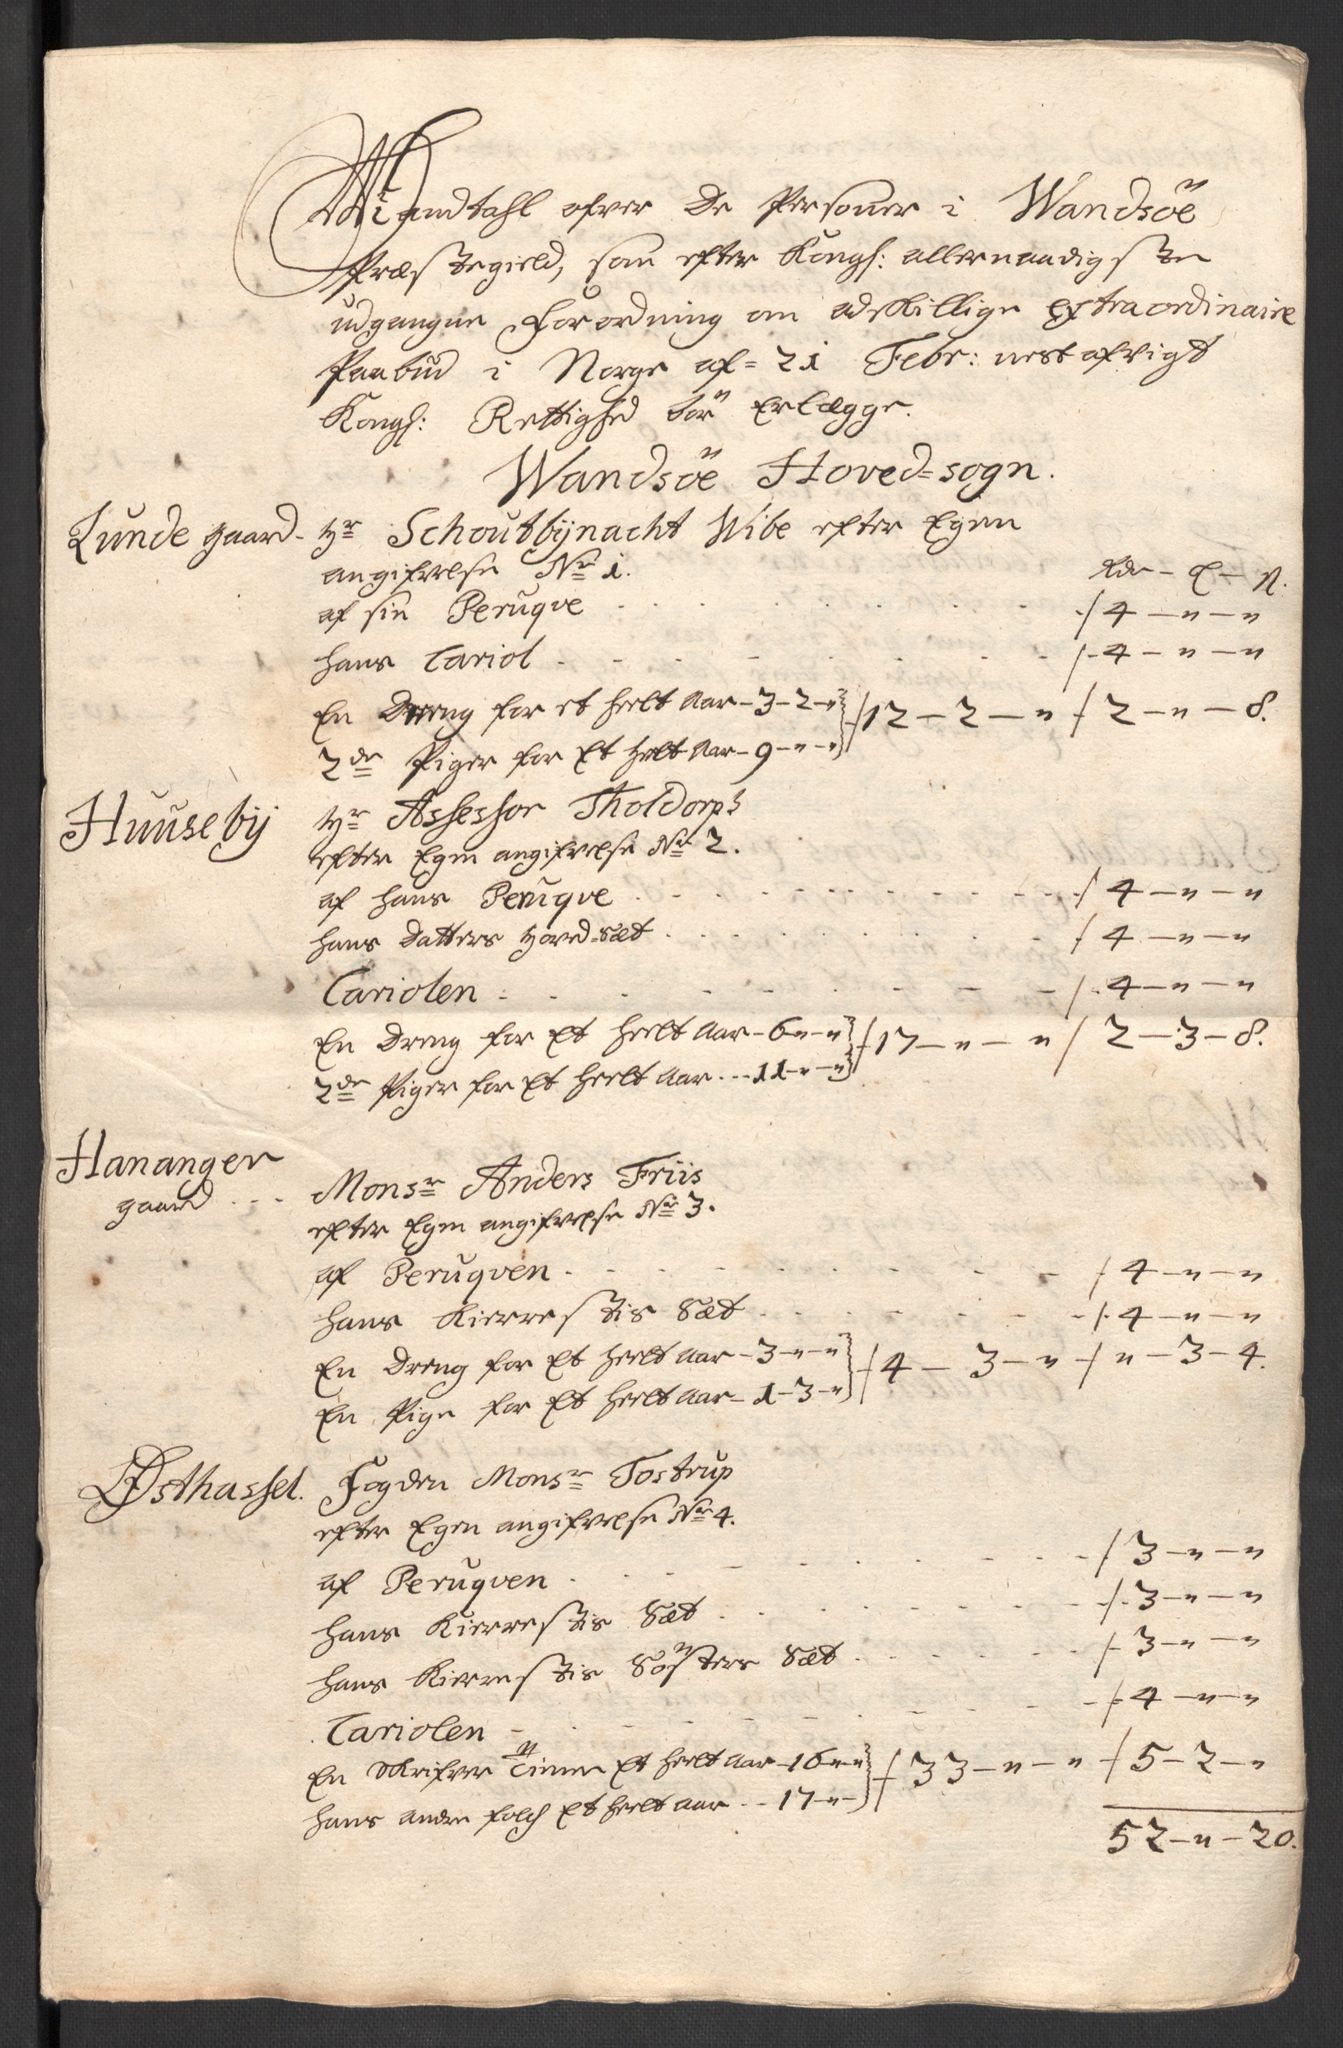 Mandtahl ofver De Personer i Wandsöe
Præstegield, som efter Kongl: allernaadigste
udgangne Forordning om adskillige extraordinaire
Paabud i Norge af= 21 Febr: nest afvigt
Kongl: Rettighed bör Erlægge.
Wandsöe Hoved=sogn.
Lunde gaard- Hr Schoutbijnacht Wibe efter Egen
angifvelse Nr 1. Rdr - -
af sin Peruqve . . . . /4-"-"
hans Cariol . . . . /4-"-"
En Dreng for et heelt Aar-3-2-" /12-2-" / 2-"-8.
2de Piger for Et heelt Aar-9-"-"
Huuseby Hr Assessor Tholdorph
efter Egen angifvelse Nr 2.
af hans Peruqve . . . . / 4-"-"
hans Datters Hoved-Sæt . . . . / 4-"-"
Cariolen . . . . /4-"-"
En Dreng for Et heelt Aar-6-"-" /17-"-" / 2-3-8.
2de Piger for Et heelt Aar...11-"-"
Hananger
gaard . . . Monsr Anders Friis
efter Egen angifvelse Nr 3.
af Peruqven . . . . / 4-"-"
hans Kierrestis Sæt . . . . /4-"-"
En Dreng for Et heelt Aar-3-"-" /4-3-" / "-3-4.
En Pige for Et heelt Aar-1-3-"
Østhassel. Fogden Monsr Tostrup
efter Egen angifvelse Nr 4.
af Peruqven . . . . / 3-"-"
hans Kierrestis Sæt . . . . /3-"-"
hans Kierrestis Sösters Sæt . . . . /3-"-"
Cariolen . . . . /4-"-"
En Skrifver Tiener Et heelt Aar-16-"-" /33-"-" / 5-2-"
hans andre folch Et heelt aar...17-"-
52-"-20.